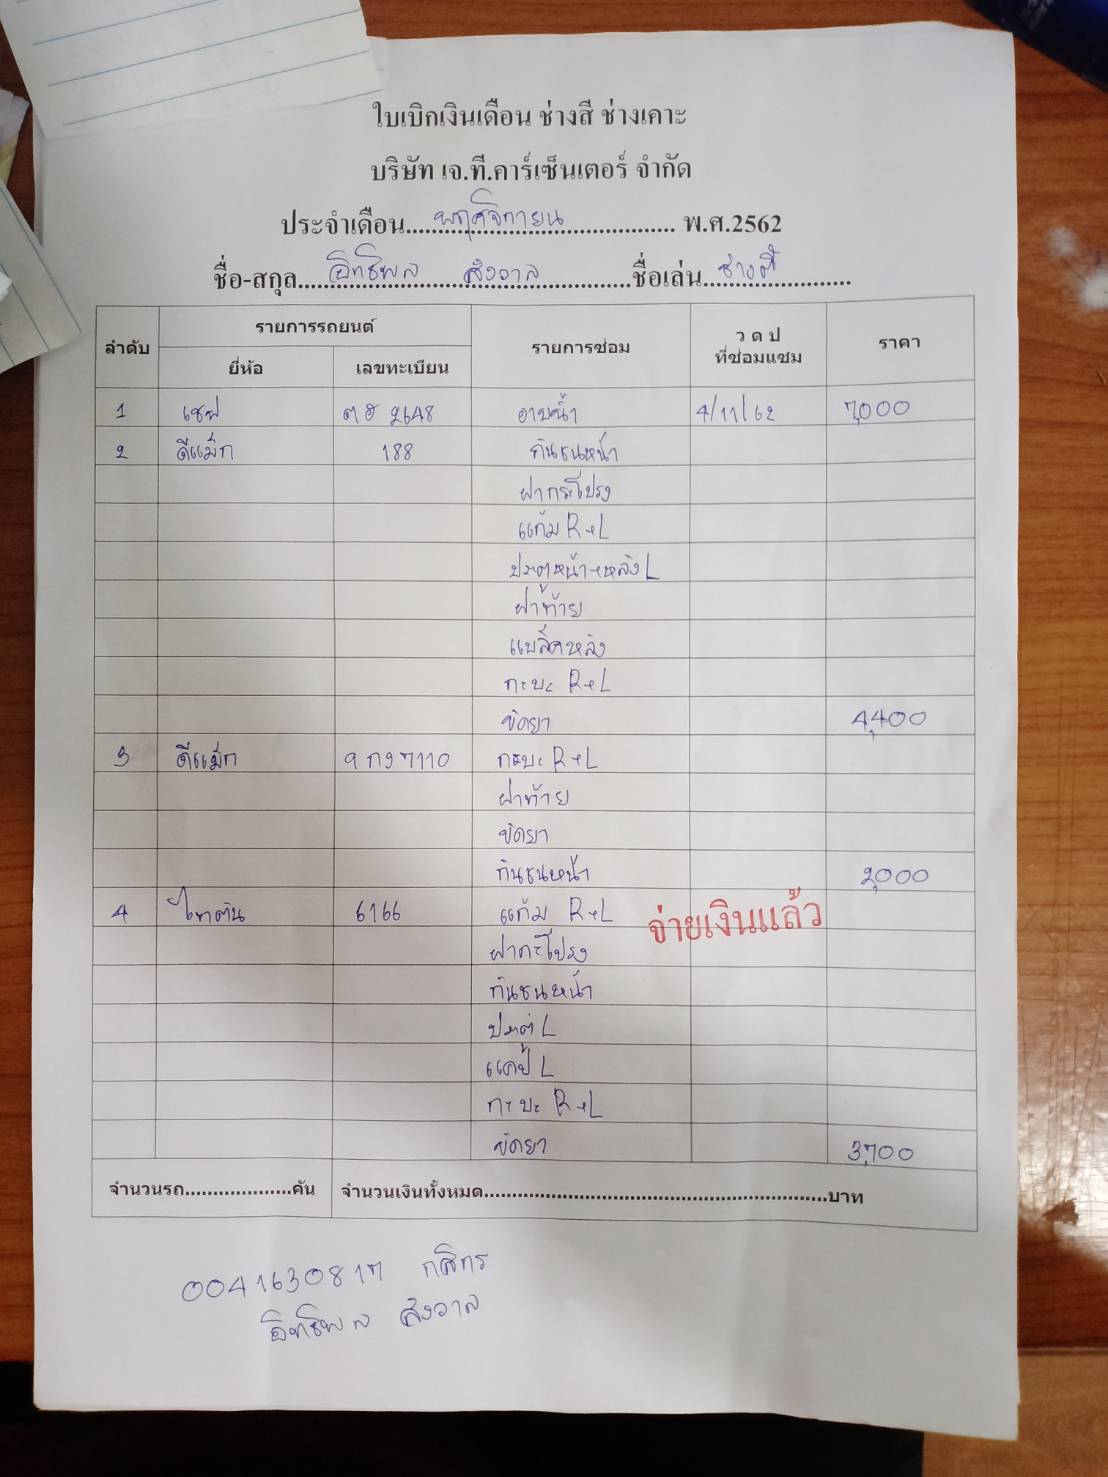 ใบเบิกเงินเดือน ช่างสี ช่างเคาะ
บริษัท เจ.ที.คาร์เซ็นเตอร์ จำกัด
ประจำเดือน....พฤศจิกายน.... พ.ศ.2562
ชื่อ-สกุล....อิทธิพล สังวาล....ชื่อเล่น....ช่างตี๋....
ลำดับ รายการรถยนต์ รายการซ่อม ว ด ป ที่ซ่อมแซม ราคา
ยี่ห้อ เลขทะเบียน
1 เชฟ 2648 อาบน้ำ 4/11/62 7,000
2 ดีแม็ก 188 กันชนหน้า
ฝากระโปรง
แก้ม R+L
ประตูหน้า+หลัง L
ฝาท้าย
แบล็คหลัง
กะบะ R+L
ขัดยา 4,400
3 ดีแม็ก 7110 กระบะ R+L
ฝาท้าย
ขัดยา
กันชนหน้า 2,000
4 ไทตัน 6166 แก้ม R+L จ่ายเงินแล้ว
ฝากะโปรง
กันชนหน้า
ประตู L
แคป L
กะบะ R+L
ขัดยา 3,700
จำนวนรถ....................คัน จำนวนเงินทั้งหมด..............................................................บาท
0041630817 กสิกร
อิทธิพล สังวาล